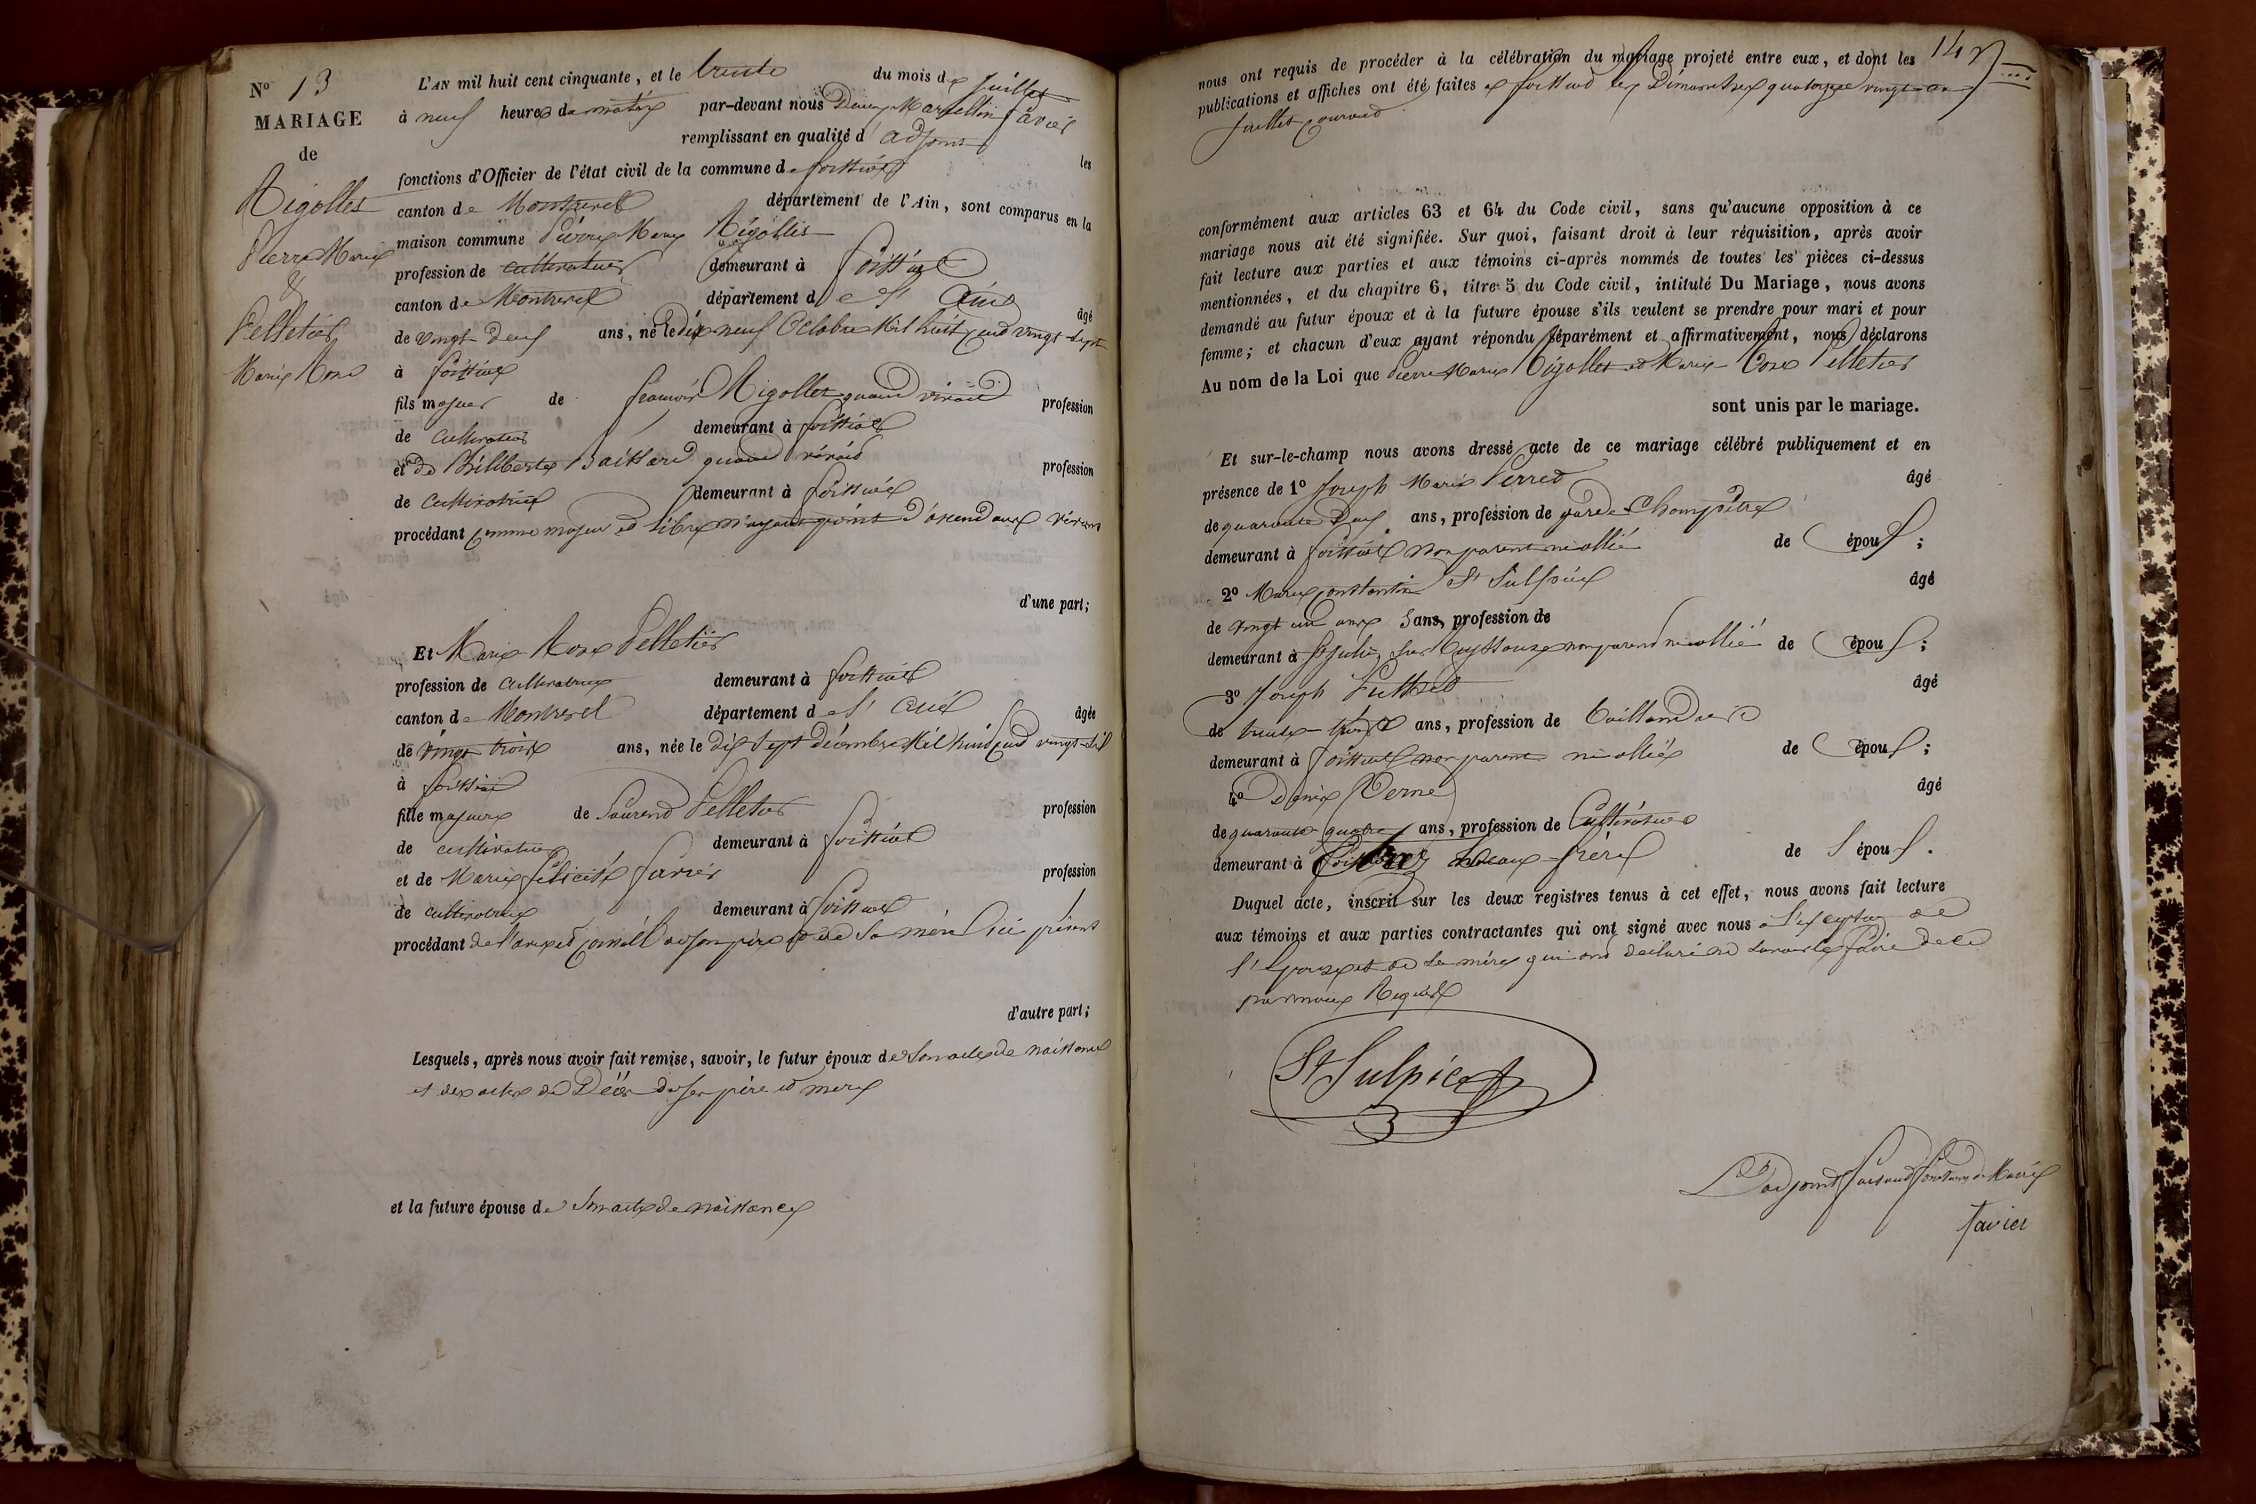 No 13
MARIAGE
de
Rigollet
Pierre Marie
&
Pelletier
Marie Rose
L'AN mil huit cent cinquante, et le trente du mois de juillet
à neuf heures du matin par-devant nous Marcellin Favier
remplissant en qualité d'adjoint les
fonctions d'Officier de l'état civil de la commune de foissiat
canton de Montrevel département de l'Ain, sont comparus en la
maison commune Pierre Marie Rigollet
profession de cultivateur demeurant à foissiat
canton de Montrevel département de l'Ain âgé
de vingt deux ans, né le dix neuf Octobre Mil huit cend vingt-sept
à foissiat
fils majeur de Rigollet quand vivait profession
de cultivateur demeurant à foissiat
et de quand vivait profession
de cultivatrice demeurant à foissiat
procédant comme majeur et libre n'ayant point d'ascendants vivant
d'une part;
Et Marie Rose Pelletier
profession de cultivatrice demeurant à foissiat
canton de Montrevel département de l'Ain âgée
de vingt trois ans, née le dix sept décembre Mil huit cend vingt-six
à foissiat
fille majeure de Laurend Pelletier profession
de cultivateur demeurant à foissiat
et de Marie félicité favier profession
de cultivatrice demeurant à foissiat
procédant de l'avis et conseil de son père et de sa mère ici présent
d'autre part;
Lesquels, après nous avoir fait remise, savoir, le futur époux de son acte de naissance
et des actes de Décès de ses père et mère
et la future épouse de son acte de naissance
nous ont requis de procéder à la célébration du mariage projeté entre eux, et dont les
publications et affiches ont été faites à foissiat les Dimanches quatorze vingt-un
juillet courand
conformément aux articles 63 et 64 du Code civil, sans qu'aucune opposition à ce
mariage nous ait été signifiée. Sur quoi, faisant droit à leur réquisition, après avoir
fait lecture aux parties et aux témoins ci-après nommés de toutes les pièces ci-dessus
mentionnées, et du chapitre 6, titre 5 du Code civil, intitulé Du Mariage, nous avons
demandé au futur époux et à la future épouse s'ils veulent se prendre pour mari et pour
femme; et chacun d'eux ayant répondu séparément et affirmativement, nous déclarons
Au nom de la Loi que Pierre Marie Rigollet et Marie Rose Pelletier
sont unis par le mariage.
Et sur-le-champ nous avons dressé acte de ce mariage célébré publiquement et en
présence de 1º Joseph Marie Perred âgé
de quarante deux ans, profession de garde Champêtre
demeurant à foissiat non parent ni allié de époux;
2º Marie Constantin St Sulpice âgé
de vingt un ans Sans profession de
demeurant à St julien sur Reyssouze non parend ni allié de époux;
3º Joseph âgé
de trente ans, profession de taillandier
demeurant à foissiat non parent ni allié de époux;
4º Denis Verne âgé
de quarante quatre ans, profession de Cultivateur
demeurant à beau-frère de l'époux.
Duquel acte, inscrit sur les deux registres tenus à cet effet, nous avons fait lecture
aux témoins et aux parties contractantes qui ont signé avec nous à l'exception de
l'épouse et de sa mère qui ont déclaré ne savoir le faire de ce
par nous Requis
St Sulpice
L'adjoint faisant fonctions de Maire
favier